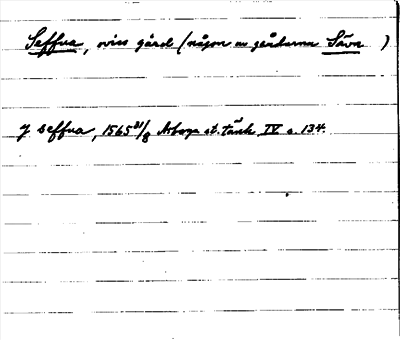 Seffua, viss gård (någon av gårdarna Säva )
J seffua, 1565 21/8 Arboga st. tänk. IV s. 134.